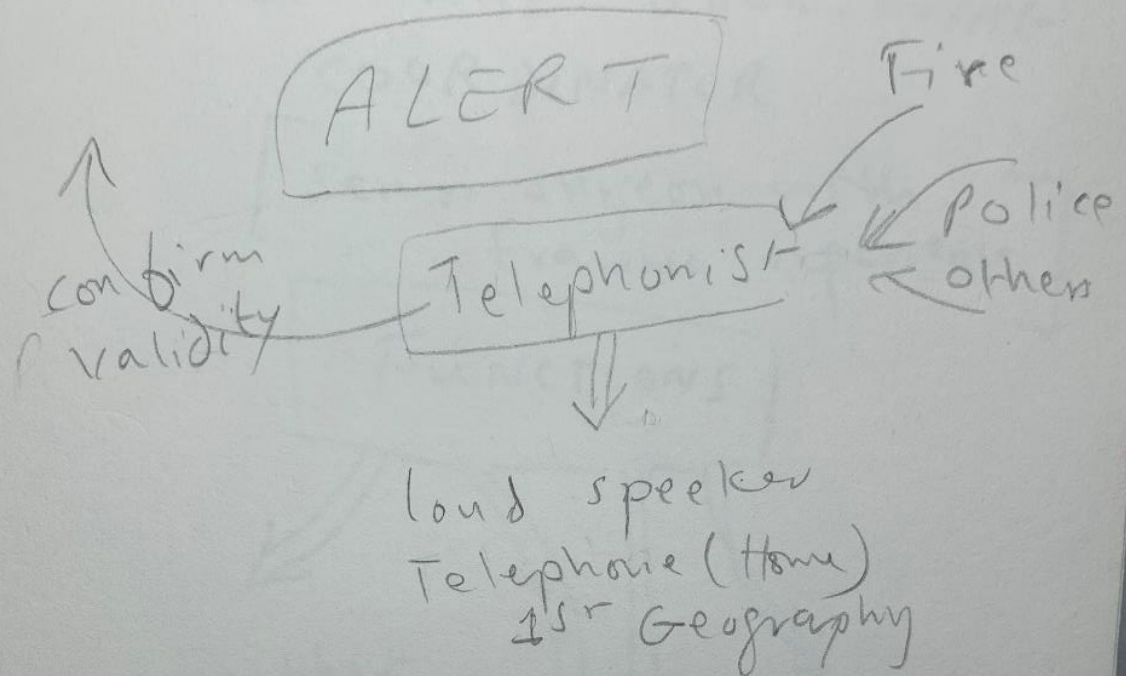 ALERT
Fire
Police
others
Telephonist
confirm
validity
loud speeker
Telephone (Home)
1st Geography